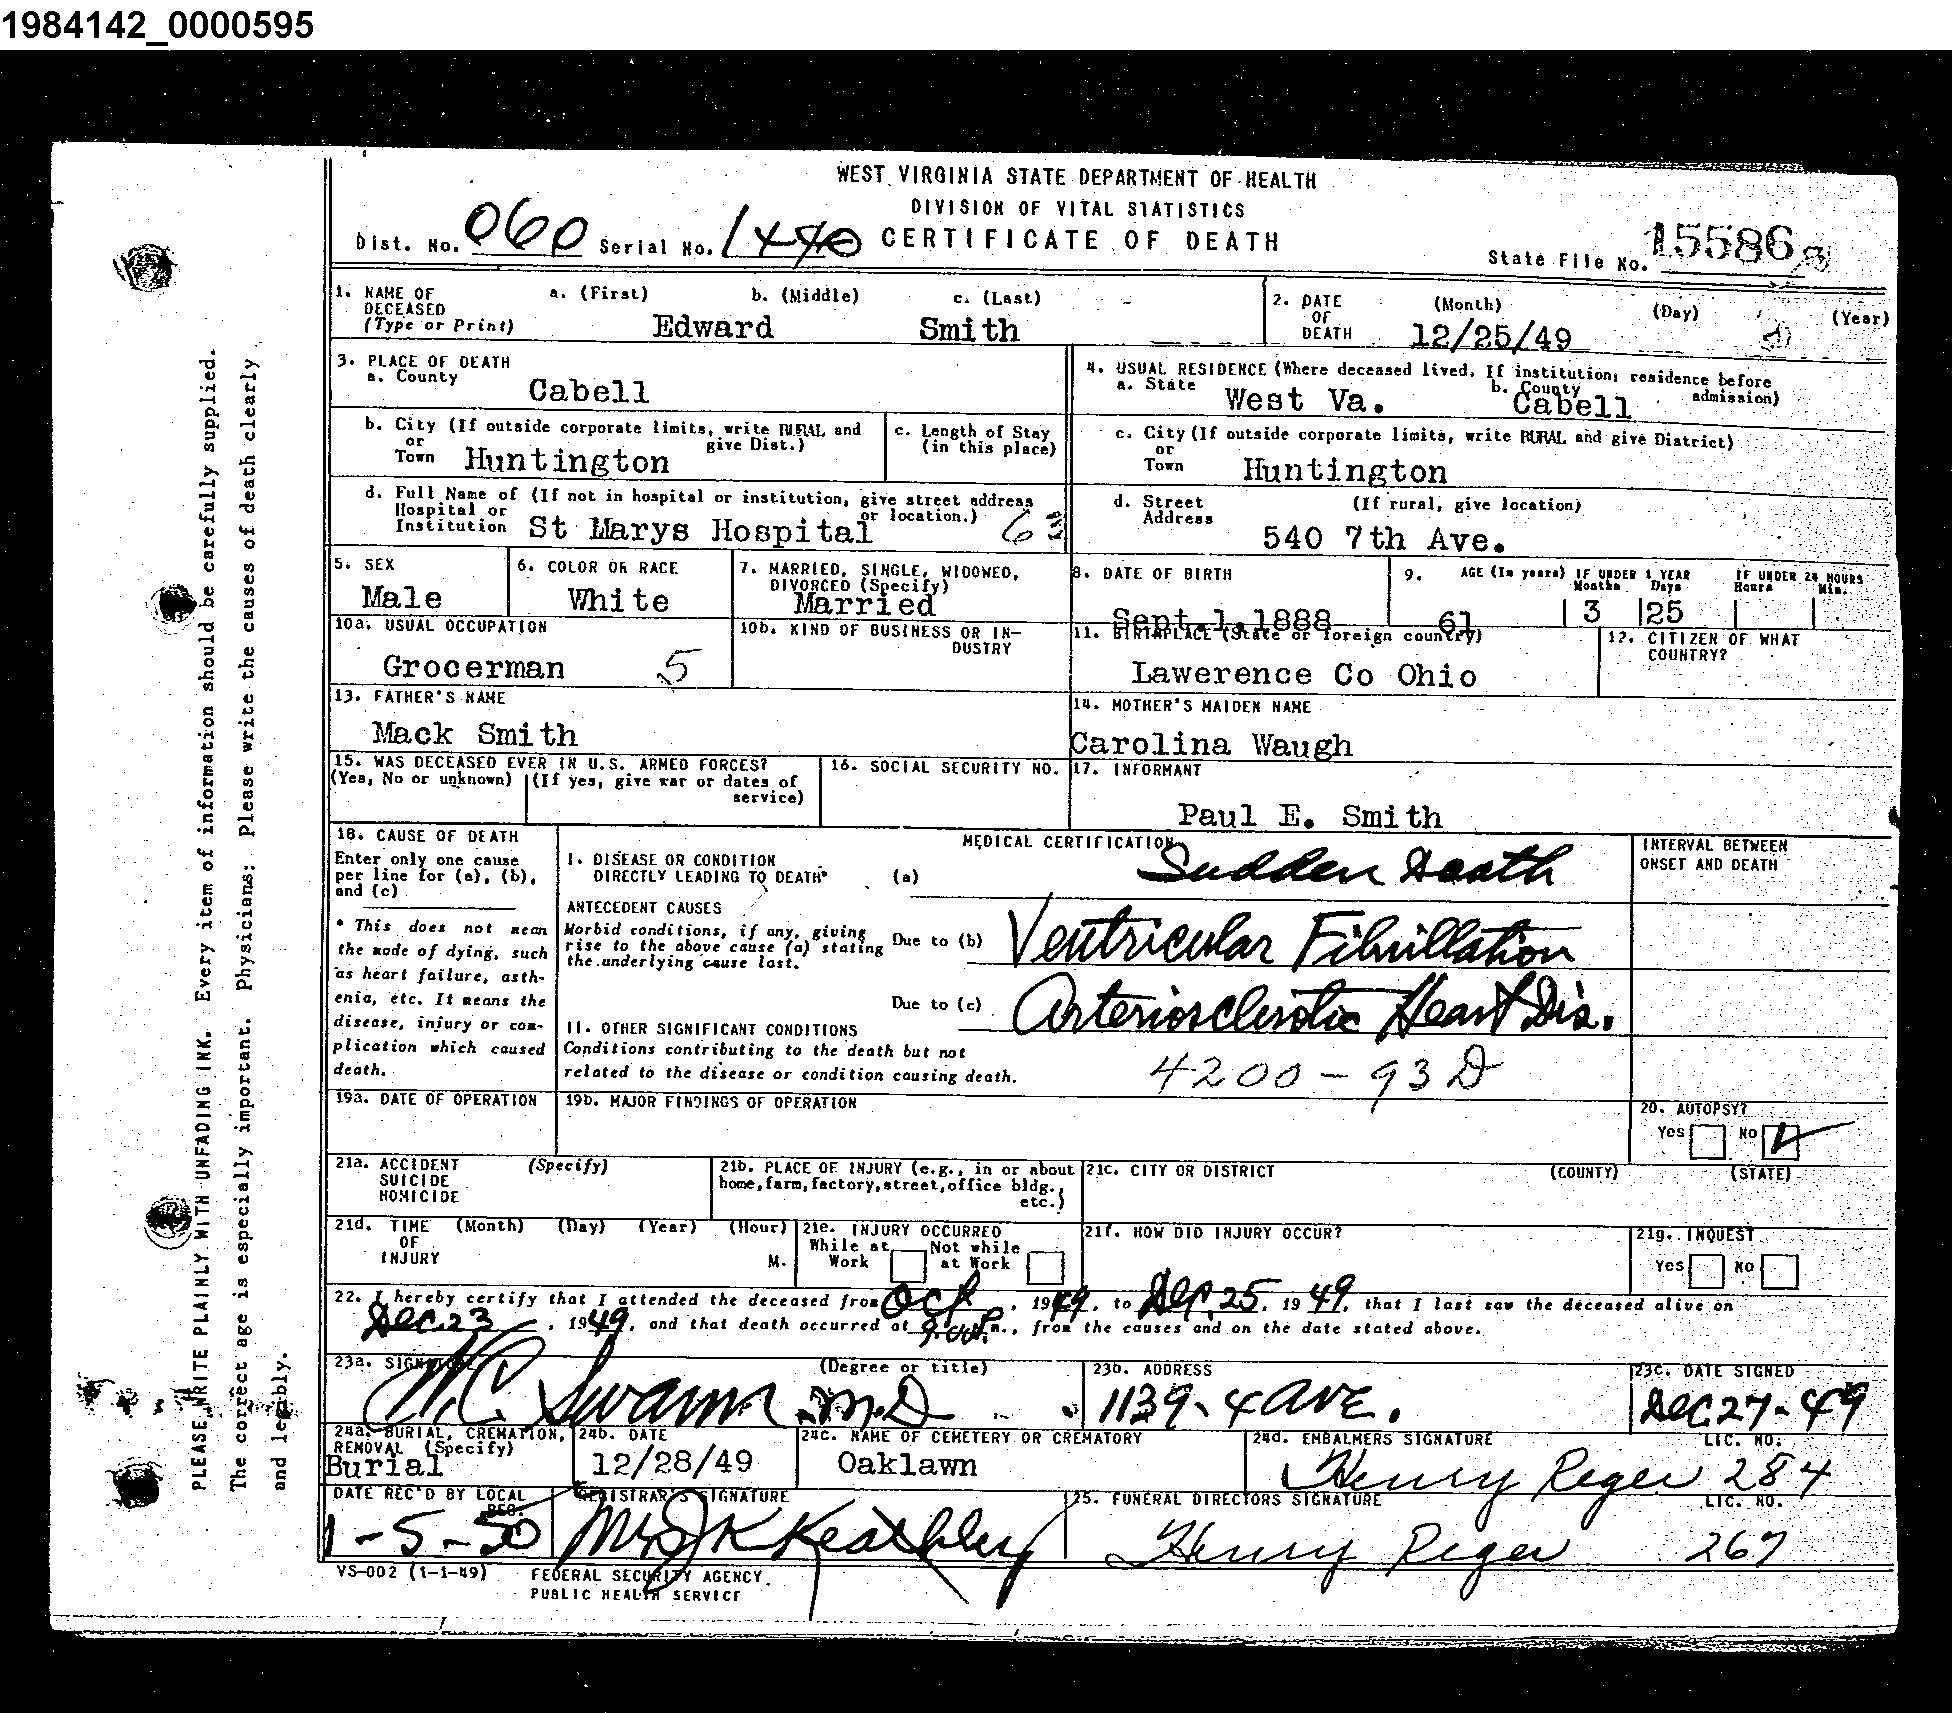 1984142_0000595
WEST VIRGINIA STATE DEPARTMENT OF HEALTH
DIVISION OF VITAL STATISTICS
Dist. No. 060 Serial No. 1440 CERTIFICATE OF DEATH State File No. 15586
1. NAME OF DECEASED (Type or Print) a. (First) b. (Middle) c. (Last)
Edward Smith
2. DATE OF DEATH (Month) (Day) (Year)
12/25/49
3. PLACE OF DEATH
a. County Cabell
4. USUAL RESIDENCE (Where deceased lived. If institution: residence before admission)
a. State West Va. b. County Cabell
b. City (If outside corporate limits, write RURAL and give Dist.)
or Town Huntington
c. Length of Stay (in this place)
c. City (If outside corporate limits, write RURAL and give District)
or Town Huntington
d. Full Name of (If not in hospital or institution, give street address or location.)
Hospital or Institution St Marys Hospital 6
d. Street Address (If rural, give location)
540 7th Ave.
5. SEX
Male
6. COLOR OR RACE
White
7. MARRIED, SINGLE, WIDOWED, DIVORCED (Specify)
Married
8. DATE OF BIRTH
Sept.1,1888
9. AGE (In years) IF UNDER 1 YEAR Months Days IF UNDER 24 HOURS Hours Min.
61 3 25
10a. USUAL OCCUPATION
Grocerman 5
10b. KIND OF BUSINESS OR INDUSTRY
11. BIRTHPLACE (State or foreign country)
Lawerence Co Ohio
12. CITIZEN OF WHAT COUNTRY?
13. FATHER'S NAME
Mack Smith
14. MOTHER'S MAIDEN NAME
Carolina Waugh
15. WAS DECEASED EVER IN U.S. ARMED FORCES?
(Yes, No or unknown) (If yes, give war or dates of service)
16. SOCIAL SECURITY NO.
17. INFORMANT
Paul E. Smith
18. CAUSE OF DEATH
Enter only one cause per line for (a), (b), and (c)
* This does not mean the mode of dying, such as heart failure, asthenia, etc. It means the disease, injury or complication which caused death.
MEDICAL CERTIFICATION
INTERVAL BETWEEN ONSET AND DEATH
I. DISEASE OR CONDITION DIRECTLY LEADING TO DEATH* (a) Sudden Death
ANTECEDENT CAUSES
Morbid conditions, if any, giving rise to the above cause (a) stating the underlying cause last.
Due to (b) Ventricular Fibrillation
Due to (c) Arteriosclerotic Heart Dis.
II. OTHER SIGNIFICANT CONDITIONS
Conditions contributing to the death but not related to the disease or condition causing death.
4200 - 93 D
19a. DATE OF OPERATION
19b. MAJOR FINDINGS OF OPERATION
20. AUTOPSY?
Yes No
21a. ACCIDENT SUICIDE HOMICIDE (Specify)
21b. PLACE OF INJURY (e.g., in or about home, farm, factory, street, office bldg., etc.)
21c. CITY OR DISTRICT (COUNTY) (STATE)
21d. TIME OF INJURY (Month) (Day) (Year) (Hour) M.
21e. INJURY OCCURRED
While at Work Not while at Work
21f. HOW DID INJURY OCCUR?
21g. INQUEST
Yes No
22. I hereby certify that I attended the deceased from Oct, 1949, to Dec. 25, 1949, that I last saw the deceased alive on
Dec. 23, 1949, and that death occurred at m., from the causes and on the date stated above.
23a. SIGNATURE (Degree or title)
W.C. Swann M.D
23b. ADDRESS
1139-4 AVE.
23c. DATE SIGNED
Dec 27-49
24a. BURIAL, CREMATION, REMOVAL (Specify)
Burial
24b. DATE
12/28/49
24c. NAME OF CEMETERY OR CREMATORY
Oaklawn
24d. EMBALMERS SIGNATURE LIC. NO.
Henry Reger 284
DATE REC'D BY LOCAL REG.
1-5-50
REGISTRAR'S SIGNATURE
Mrs J K Keathley
25. FUNERAL DIRECTORS SIGNATURE LIC. NO.
Henry Reger 267
VS-002 (1-1-49) FEDERAL SECURITY AGENCY
PUBLIC HEALTH SERVICE
PLEASE WRITE PLAINLY WITH UNFADING INK. Every item of information should be carefully supplied.
The correct age is especially important. Physicians: Please write the causes of death clearly
and legibly.